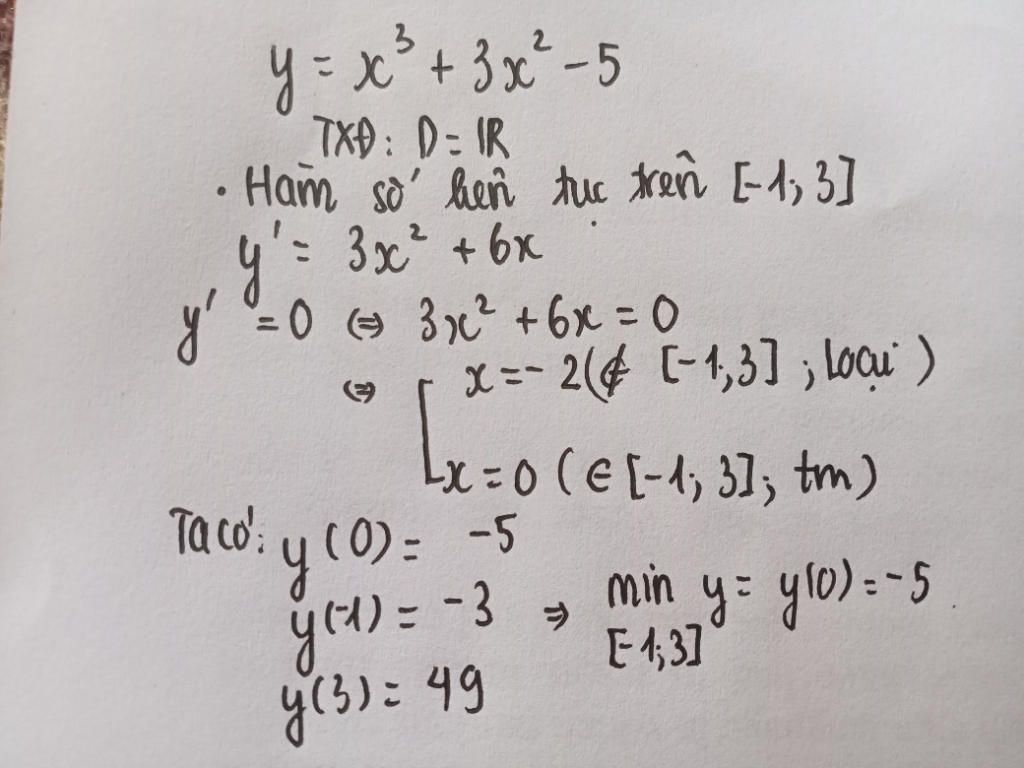 y = x³ + 3x² - 5
TXĐ: D = ℝ
• Hàm số liên tục trên [-1; 3]
y' = 3x² + 6x
y' = 0 ⇔ 3x² + 6x = 0
⇔ [ x = -2 (∉ [-1; 3]; loại)
x = 0 (∈ [-1; 3]; tm)
Ta có: y(0) = -5
y(-1) = -3 ⇒ min y = y(0) = -5
[-1; 3]
y(3) = 49